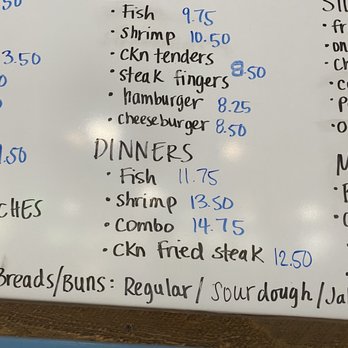 50
• Fish 9.75
• shrimp 10.50
• ckn tenders
• steak fingers 8.50
• hamburger 8.25
• cheeseburger 8.50
3.50
.50
DINNERS
• Fish 11.75
• shrimp 13.50
• combo 14.75
• ckn fried steak 12.50
CHES
Breads/Buns: Regular/Sourdough/Ja